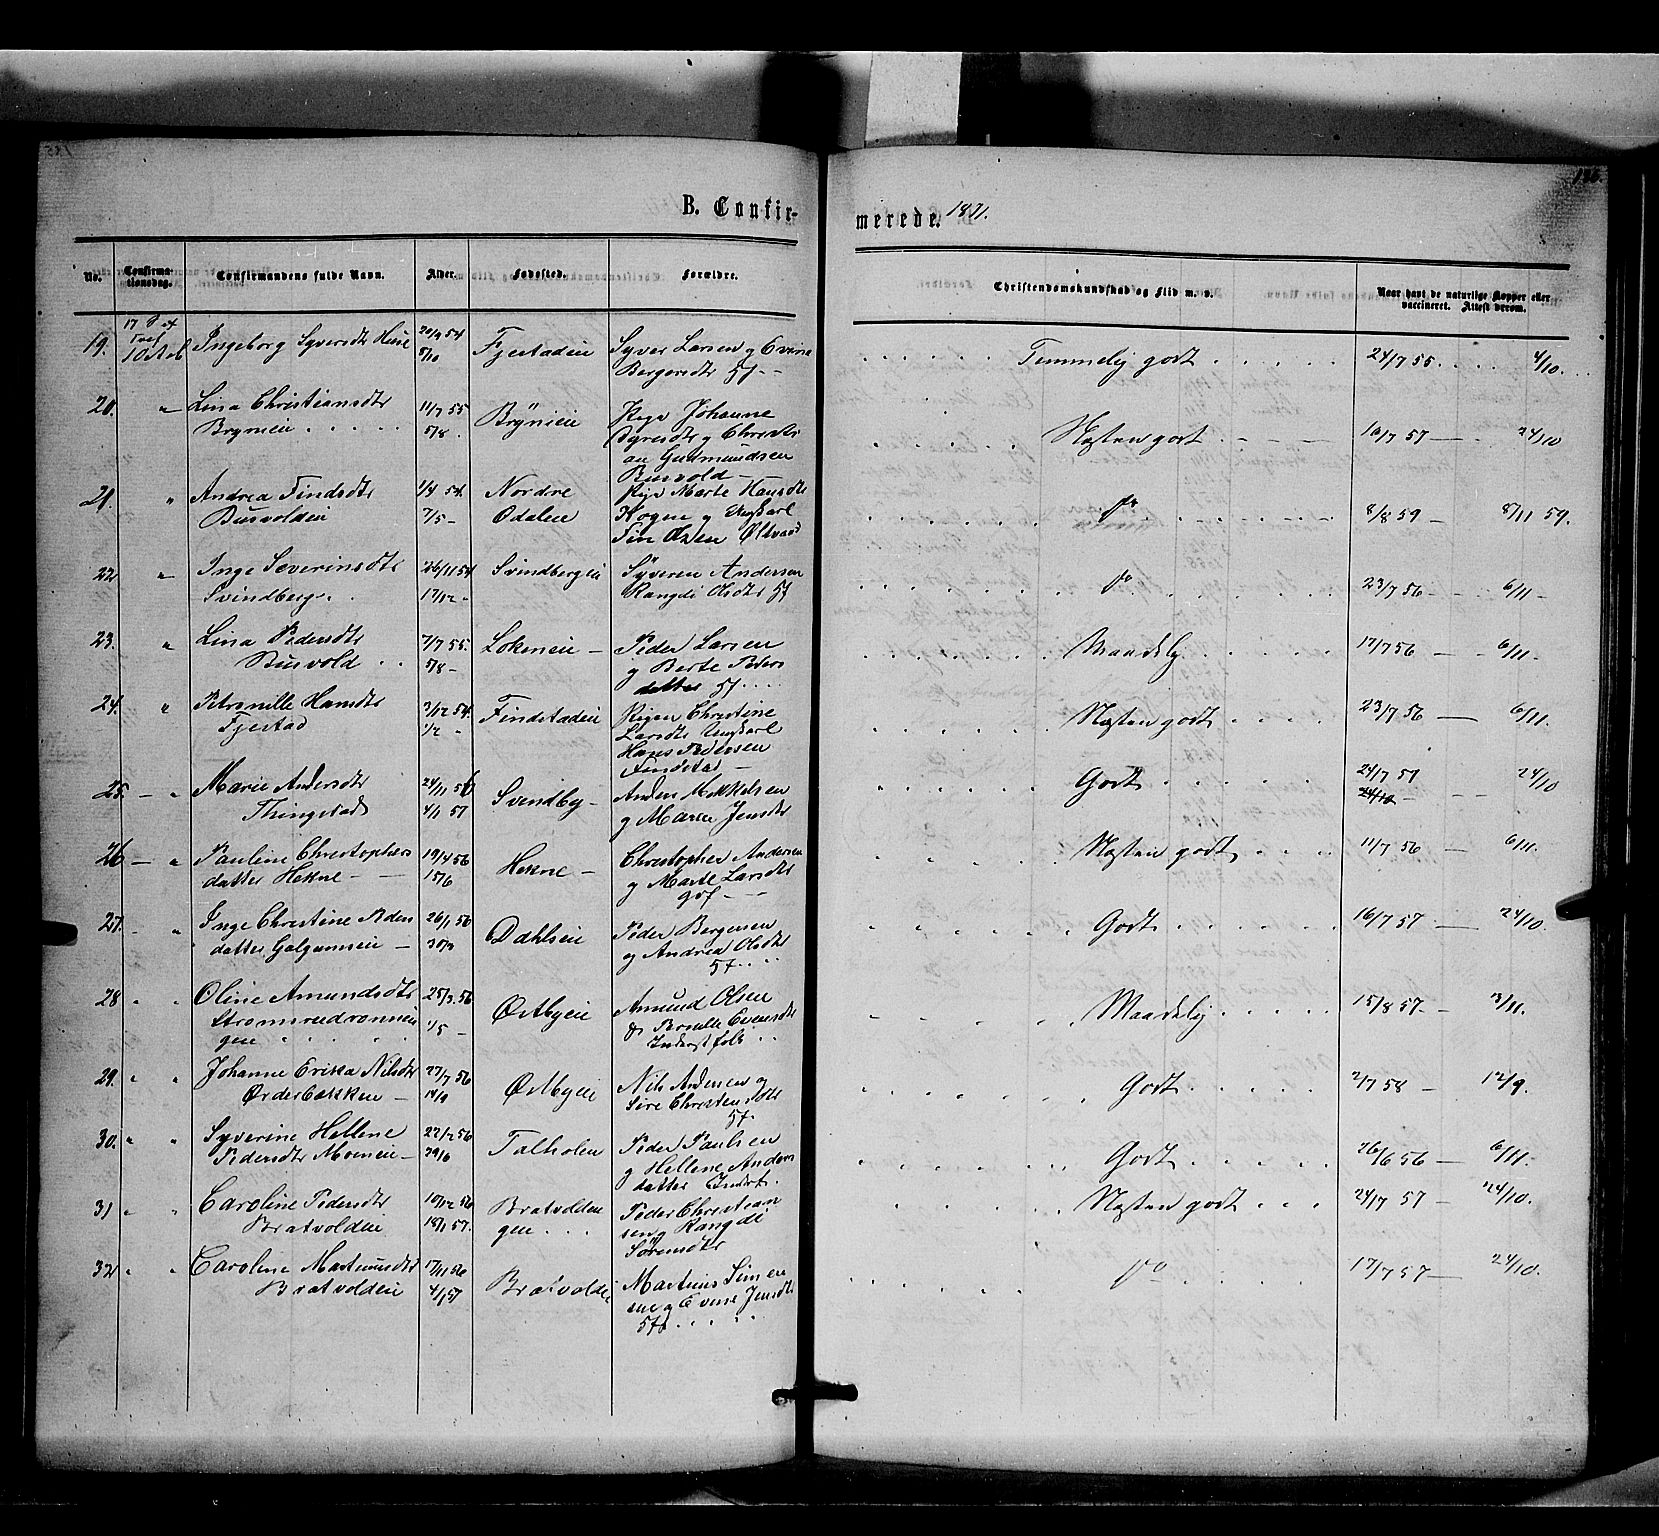 186.
B. Confir-
merede. 1871.
No.
Confirma-
tionsdag.
Confirmandens fulde Navn.
Alder.
Fødested.
Forældre.
Christendomskundskab og Flid m. v.
Naar havt de naturlige Kopper eller
vaccineret. Attest derom.
19.
17
10 Oct
Ingeborg Syversdtr
20/9 54
8/10
Fjestadeie
Syver Larsen og
Bergersdtr
Temmelig godt
24/7 55
4/10.
20.
"
Lina Christiansdtr
Brynieie
11/7 55
5/8
Brynieie
Pige Johanne
og Christi
an Gudmundsen
Busvold
Næsten godt
16/7 57
24/10
21.
"
Andrea Findsdtr
Busvoldeie
1/4 54
7/5
Nordre
Odalen
Pige Marte Hansdtr
og Ungkarl
Fin Olsen
do
8/8 59
8/11 59.
22
"
Inge Severinsdtr
Svindberg
26/11 54
17/12
Svindbergeie
Syveren Andersen
Rangdi Olsdtr
do
23/7 56
6/11
23.
"
Lina Pedersdtr
Busvold
7/7 55.
5/8
Lokeneie
Peder Larsen
og Berte Peders
datter
Maadelig
17/7 56
6/11.
24.
"
Petronille Hansdtr
Fjestad
3/12 54.
1/2
Findstadeie
Pigen Christine
Larsdtr Ungkarl
Hans Pedersen
Findstad
Næsten godt
23/7 56
6/11.
25.
"
Marie Andersdtr
Thingstad
24/11 56
4/1 57
Svendby
Anders Mikkelsen
og Maren Jensdtr
Godt
24/7 57
24/10
24/10
26
"
Pauline Christophers
datter Hekne
19/4 56
15/6
Hekne
Christopher Andersen
og Marte Larsdtr
Næsten godt
11/7 56
6/11.
27.
"
Inge Christine Peders
datter Galgumseie
26/1 56
30/3
Dahlseie
Peder Bergersen
og Andrea Olsdtr
Godt
16/7 57
24/10.
28
"
Oline Amundsdtr
25/3 56
1/5
Østbyeie
Amund Olsen
Inderstfolk
Maadelig
15/8 57.
3/11.
29.
"
Johanne Erikka Nilsdtr
Ørderbækken
27/7 56
14/9
Østbyeie
Nils Andersen og
Siri Christensdtr
Godt
2/7 58
12/9.
30.
"
Syverine Hellene
Pedersdtr Moeneie
22/2 56
29/6
Talholen
Peder Paulsen
og Hellene Anders
datter Inderst.
Godt
26/6 56
6/11.
31
"
Caroline Pedersdtr
Bratvoldeie
10/12 56
18/1 57.
Bratvoldeie
gen
Peder Christian
sen og Rangdi
Sørensdtr
Næsten godt
24/7 57
24/10.
32
"
Caroline Martinusdtr
Bratvoldeie
17/11 56
4/1 57
Bratvoldeie
Martinus Simen
sen og Evine Jensdtr
do
17/7 57
24/10.